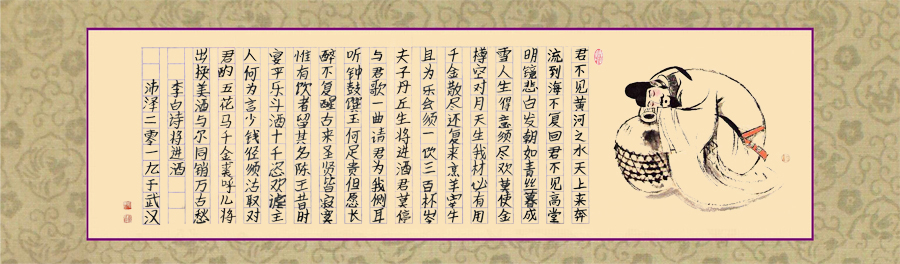 君不见黄河之水天上来奔
流到海不复回君不见高堂
明镜悲白发朝如青丝暮成
雪人生得意须尽欢莫使金
樽空对月天生我材必有用
千金散尽还复来烹羊宰牛
且为乐会须一饮三百杯岑
夫子丹丘生将进酒君莫停
与君歌一曲请君为我侧耳
听钟鼓馔玉何足贵但愿长
醉不复醒古来圣贤皆寂寞
惟有饮者留其名陈王昔时
宴平乐斗酒十千恣欢谑主
人何为言少钱径须沽取对
君酌五花马千金裘呼儿将
出换美酒与尔同销万古愁
李白诗将进酒
沛泽二零一九于武汉